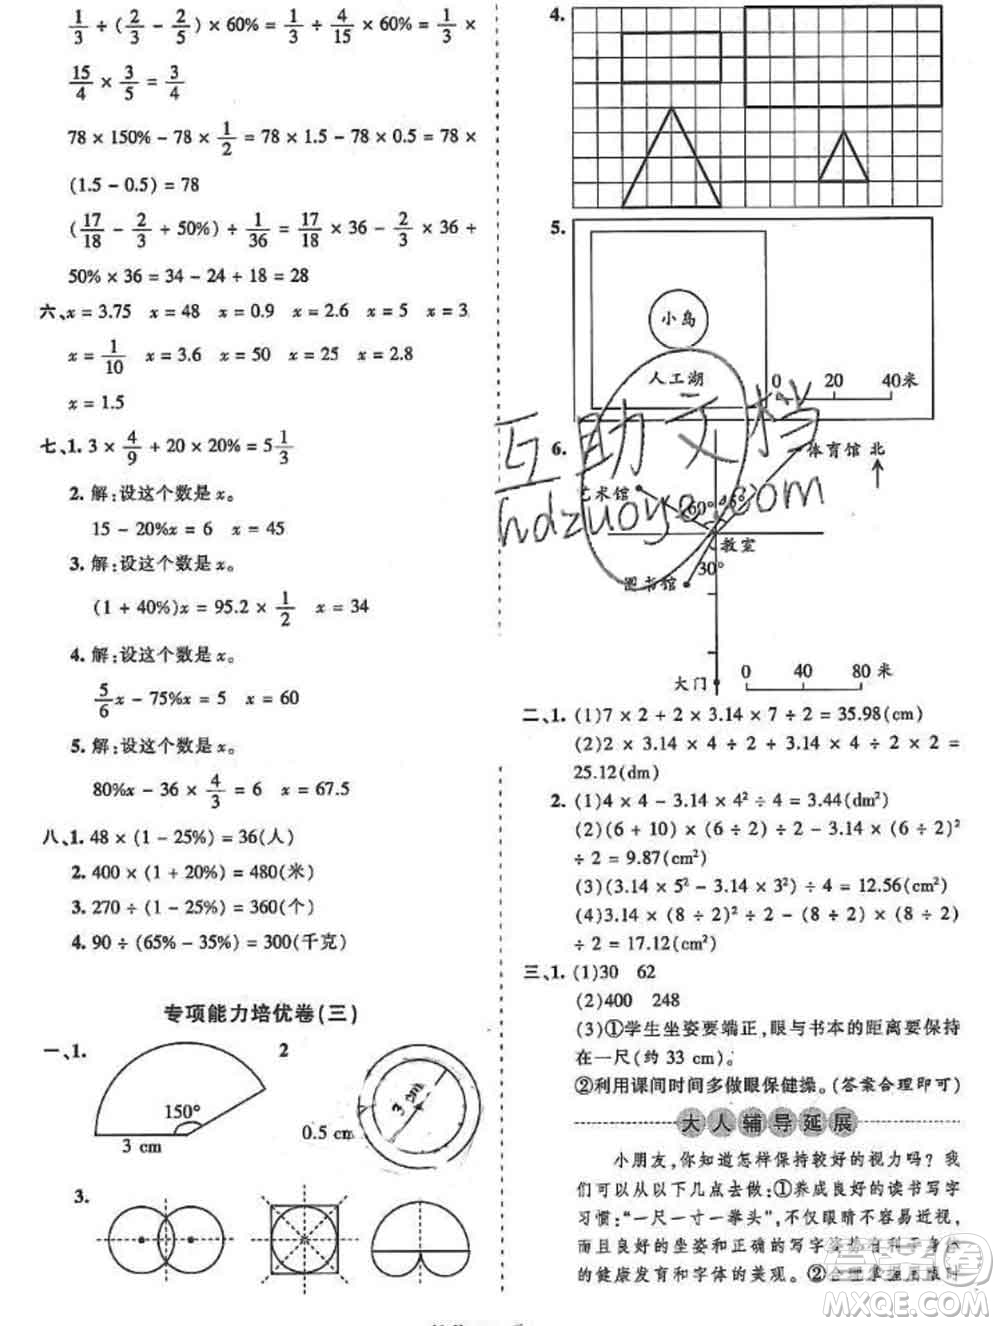 1/3 ÷ (2/3 - 2/5) × 60% = 1/3 ÷ 4/15 × 60% = 1/3 ×
15/4 × 3/5 = 3/4
78 × 150% - 78 × 1/2 = 78 × 1.5 - 78 × 0.5 = 78 ×
(1.5 - 0.5) = 78
(17/18 - 2/3 + 50%) ÷ 1/36 = 17/18 × 36 - 2/3 × 36 +
50% × 36 = 34 - 24 + 18 = 28
六、x = 3.75 x = 48 x = 0.9 x = 2.6 x = 5 x = 3
x = 1/10 x = 3.6 x = 50 x = 25 x = 2.8
x = 1.5
七、1. 3 × 4/9 + 20 × 20% = 5 1/3
2. 解:设这个数是 x。
15 - 20%x = 6 x = 45
3. 解:设这个数是 x。
(1 + 40%)x = 95.2 × 1/2 x = 34
4. 解:设这个数是 x。
5/6 x - 75%x = 5 x = 60
5. 解:设这个数是 x。
80%x - 36 × 4/3 = 6 x = 67.5
八、1. 48 × (1 - 25%) = 36(人)
2. 400 × (1 + 20%) = 480(米)
3. 270 ÷ (1 - 25%) = 360(个)
4. 90 ÷ (65% - 35%) = 300(千克)
专项能力培优卷(三)
一、1.
150°
3 cm
2
3 cm
0.5 cm
3.
4.
5.
小岛
人工湖
0 20 40米
6.
体育馆 北
艺术馆
60° 45°
教室
30°
图书馆
大门
0 40 80 米
二、1. (1)7 × 2 + 2 × 3.14 × 7 ÷ 2 = 35.98(cm)
(2)2 × 3.14 × 4 ÷ 2 + 3.14 × 4 ÷ 2 × 2 =
25.12(dm)
2. (1)4 × 4 - 3.14 × 4² ÷ 4 = 3.44(dm²)
(2)(6 + 10) × (6 ÷ 2) ÷ 2 - 3.14 × (6 ÷ 2)²
÷ 2 = 9.87(cm²)
(3)(3.14 × 5² - 3.14 × 3²) ÷ 4 = 12.56(cm²)
(4)3.14 × (8 ÷ 2)² ÷ 2 - 8 ÷ 2 × (8 ÷ 2)
÷ 2 = 17.12(cm²)
三、1. (1)30 62
(2)400 248
(3)①学生坐姿要端正,眼与书本的距离要保持
在一尺(约 33 cm)。
②利用课间时间多做眼保健操。(答案合理即可)
大人辅导延展
小朋友,你知道怎样保持较好的视力吗?我
们可以从以下几点去做:①养成良好的读书写字
习惯:“一尺一寸一拳头”,不仅眼睛不容易近视,
而且良好的坐姿和正确的写字姿势有利于身体
的健康发育和字体的美观。②合理掌握用眼时
互助文档
hdzuoye.com
答案圈
MXQE.COM